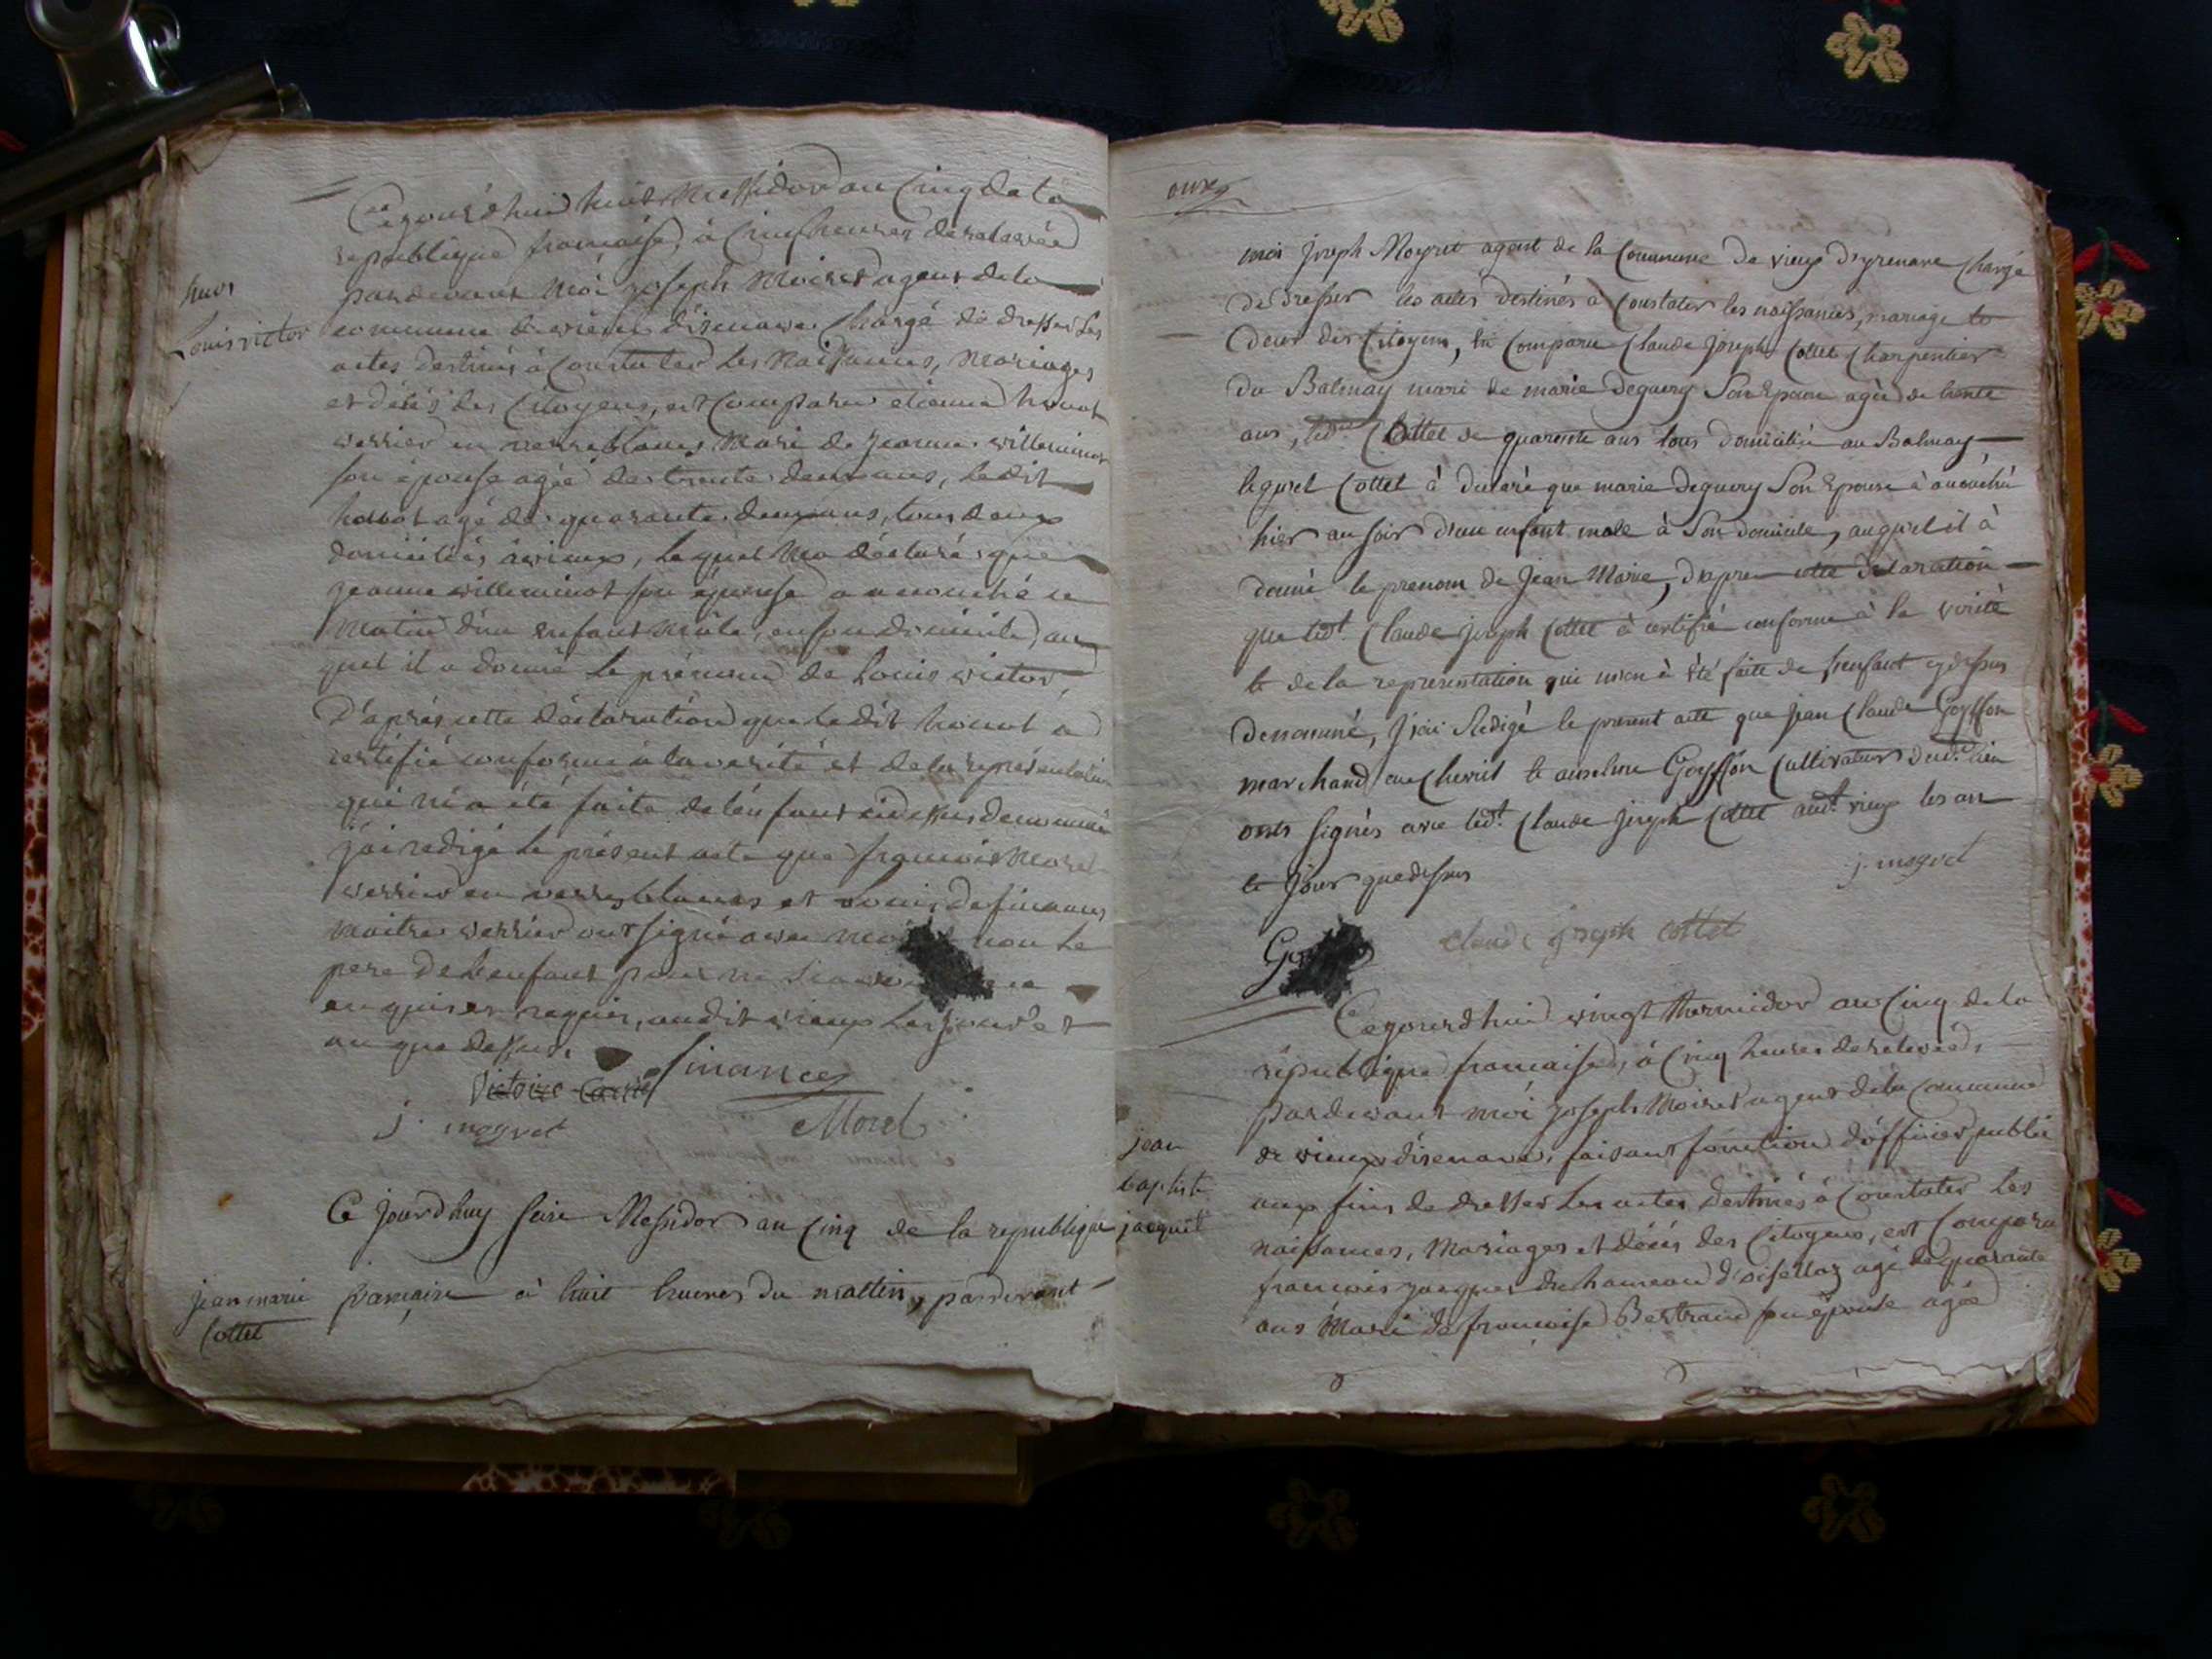 Cejourd'hui huit Messidor an Cinq de la
republique francaise, à Cinq heures de relevée
pardevant moi joseph Moiret agent de la
huot
Louis victor
commune de vieux d'isenave Chargé de dresser les
actes destinés à Constater les Naissances, Mariages
et décés des Citoyens, est Comparu etienne houot
verrier en verre blancs Mari de jeanne willeminot
son épouse agée de trente deux ans, ledit
houot agé de quarante deux ans, tous deux
domiciliés à vieux, lequel m'a déclaré que
jeanne willeminot son épouse a accouché ce
matin d'un enfant mâle, en son domicile, au
quel il a donné le prénom de Louis victor,
D'aprés cette déclaration que ledit houot a
certifié conforme à la verité et de la représentation
qui m'a été faite de l'enfant ci dessus denommé
j'ai redigé le présent acte que francois Morel
verrier en verres blancs et Louis definance
Maitre verrier ont signé avec moi non le
pere de l'enfant pour ne
enquis et requis, audit vieux les jour et
an que dessus.
finance
j. moyret
Morel
Ce jourd'huy seize Messidor an Cinq de la republique
jean marie
Cottet
francaise à huit heures du mattin, pardevant
onze
moi joseph Moyret agent de la Commune de vieux d'yzenave Chargé
de dresser les actes destinés à Constater les naissances, mariage et
deces des Citoyens, est Comparu Claude joseph Cottet Charpentier
du Balmay mari de marie deguery Son Epouse agée de trente
ans, led.t Cottet de quarente ans tous domicilié au Balmay
lequel Cottet à declaré que marie deguery Son Epouse à acouché
hier au soir d'une enfant male à Son domicile, auquel il à
donné le prenom de Jean Marie, d'apres cette declaration
que led.t Claude joseph Cottet à certifié conforme à la verité
et de la representation qui m'en à été faite de l'enfant cydessus
denommé, j'ai Redigé le present acte que jean Claude Goyffon
marchand au Chevril et anselme Goyffon Cultivateur dud.t lieu
onts signés avec led.t Claude joseph Cottet aud.t vieux les an
et jour que dessus
j. moyret
claude joseph cottet
Cejourd'hui vingt thermidor an Cinq de la
république francaise, à Cinq heures de relevée,
pardevant moi joseph Moiret agent de la Commune
jean
baptiste
jacquet
de vieux d'isenave, faisant fonction d'officier public
aux fins de dresser les actes destinés à Constater les
naissances, Mariages et décés des Citoyens, est Comparu
francois jacquet du hameau d'oisellaz agé de quarante
ans Mari de francoise Bertrand son épouse agée